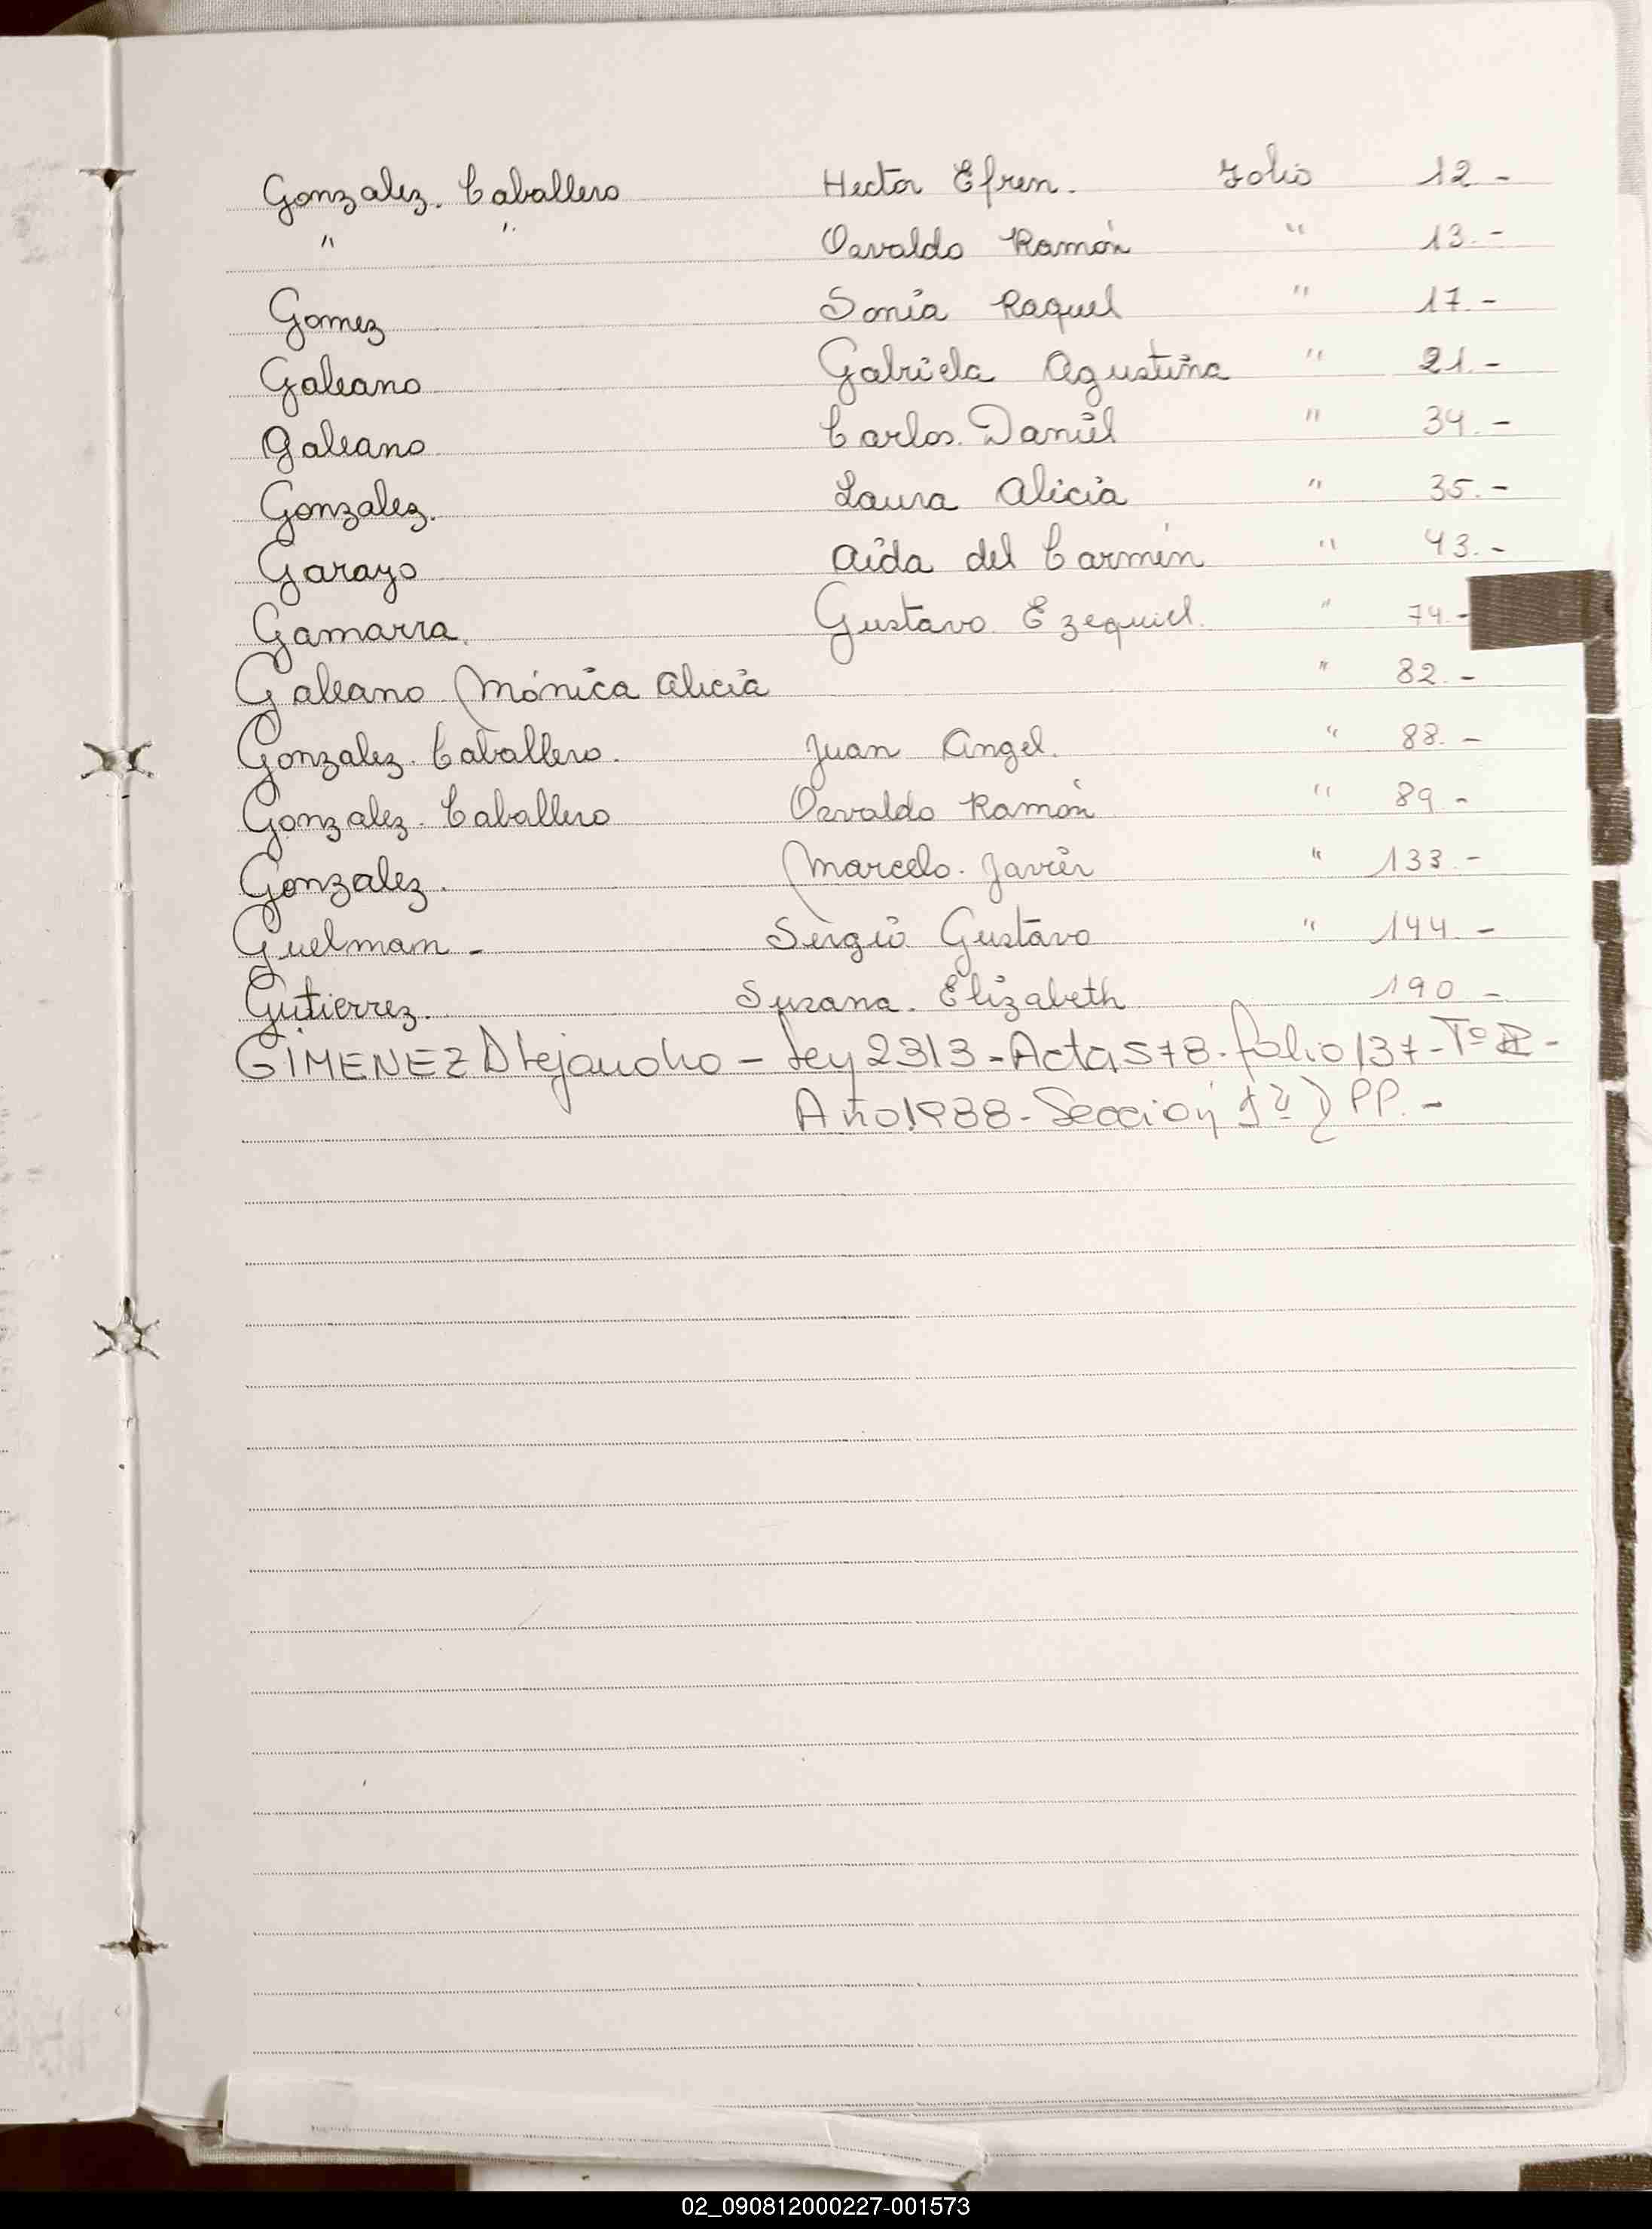 Gonzalez. Caballero Hector Efren. Folio 12-
" " Osvaldo Ramón " 13.-
Gomez Sonia Raquel " 17.-
Galeano Gabriela Agustina " 21.-
Galeano Carlos Daniel " 34.-
Gonzalez. Laura Alicia " 35.-
Garayo Aida del Carmen " 43.-
Gamarra. Gustavo Ezequiel. " 74.-
Galeano Mónica Alicia " 82.-
Gonzalez. Caballero. Juan Angel. " 88.-
Gonzalez. Caballero Osvaldo Ramón " 89-
Gonzalez. Marcelo. Javier " 133.-
Guelmam- Sergio Gustavo " 144.-
Gutierrez. Susana. Elizabeth 190-
GIMENEZ Alejandro - Ley 2313 - Acta 578 - folio 137 - Tº -
Año 1988 - Sección PP. -
02_090812000227-001573